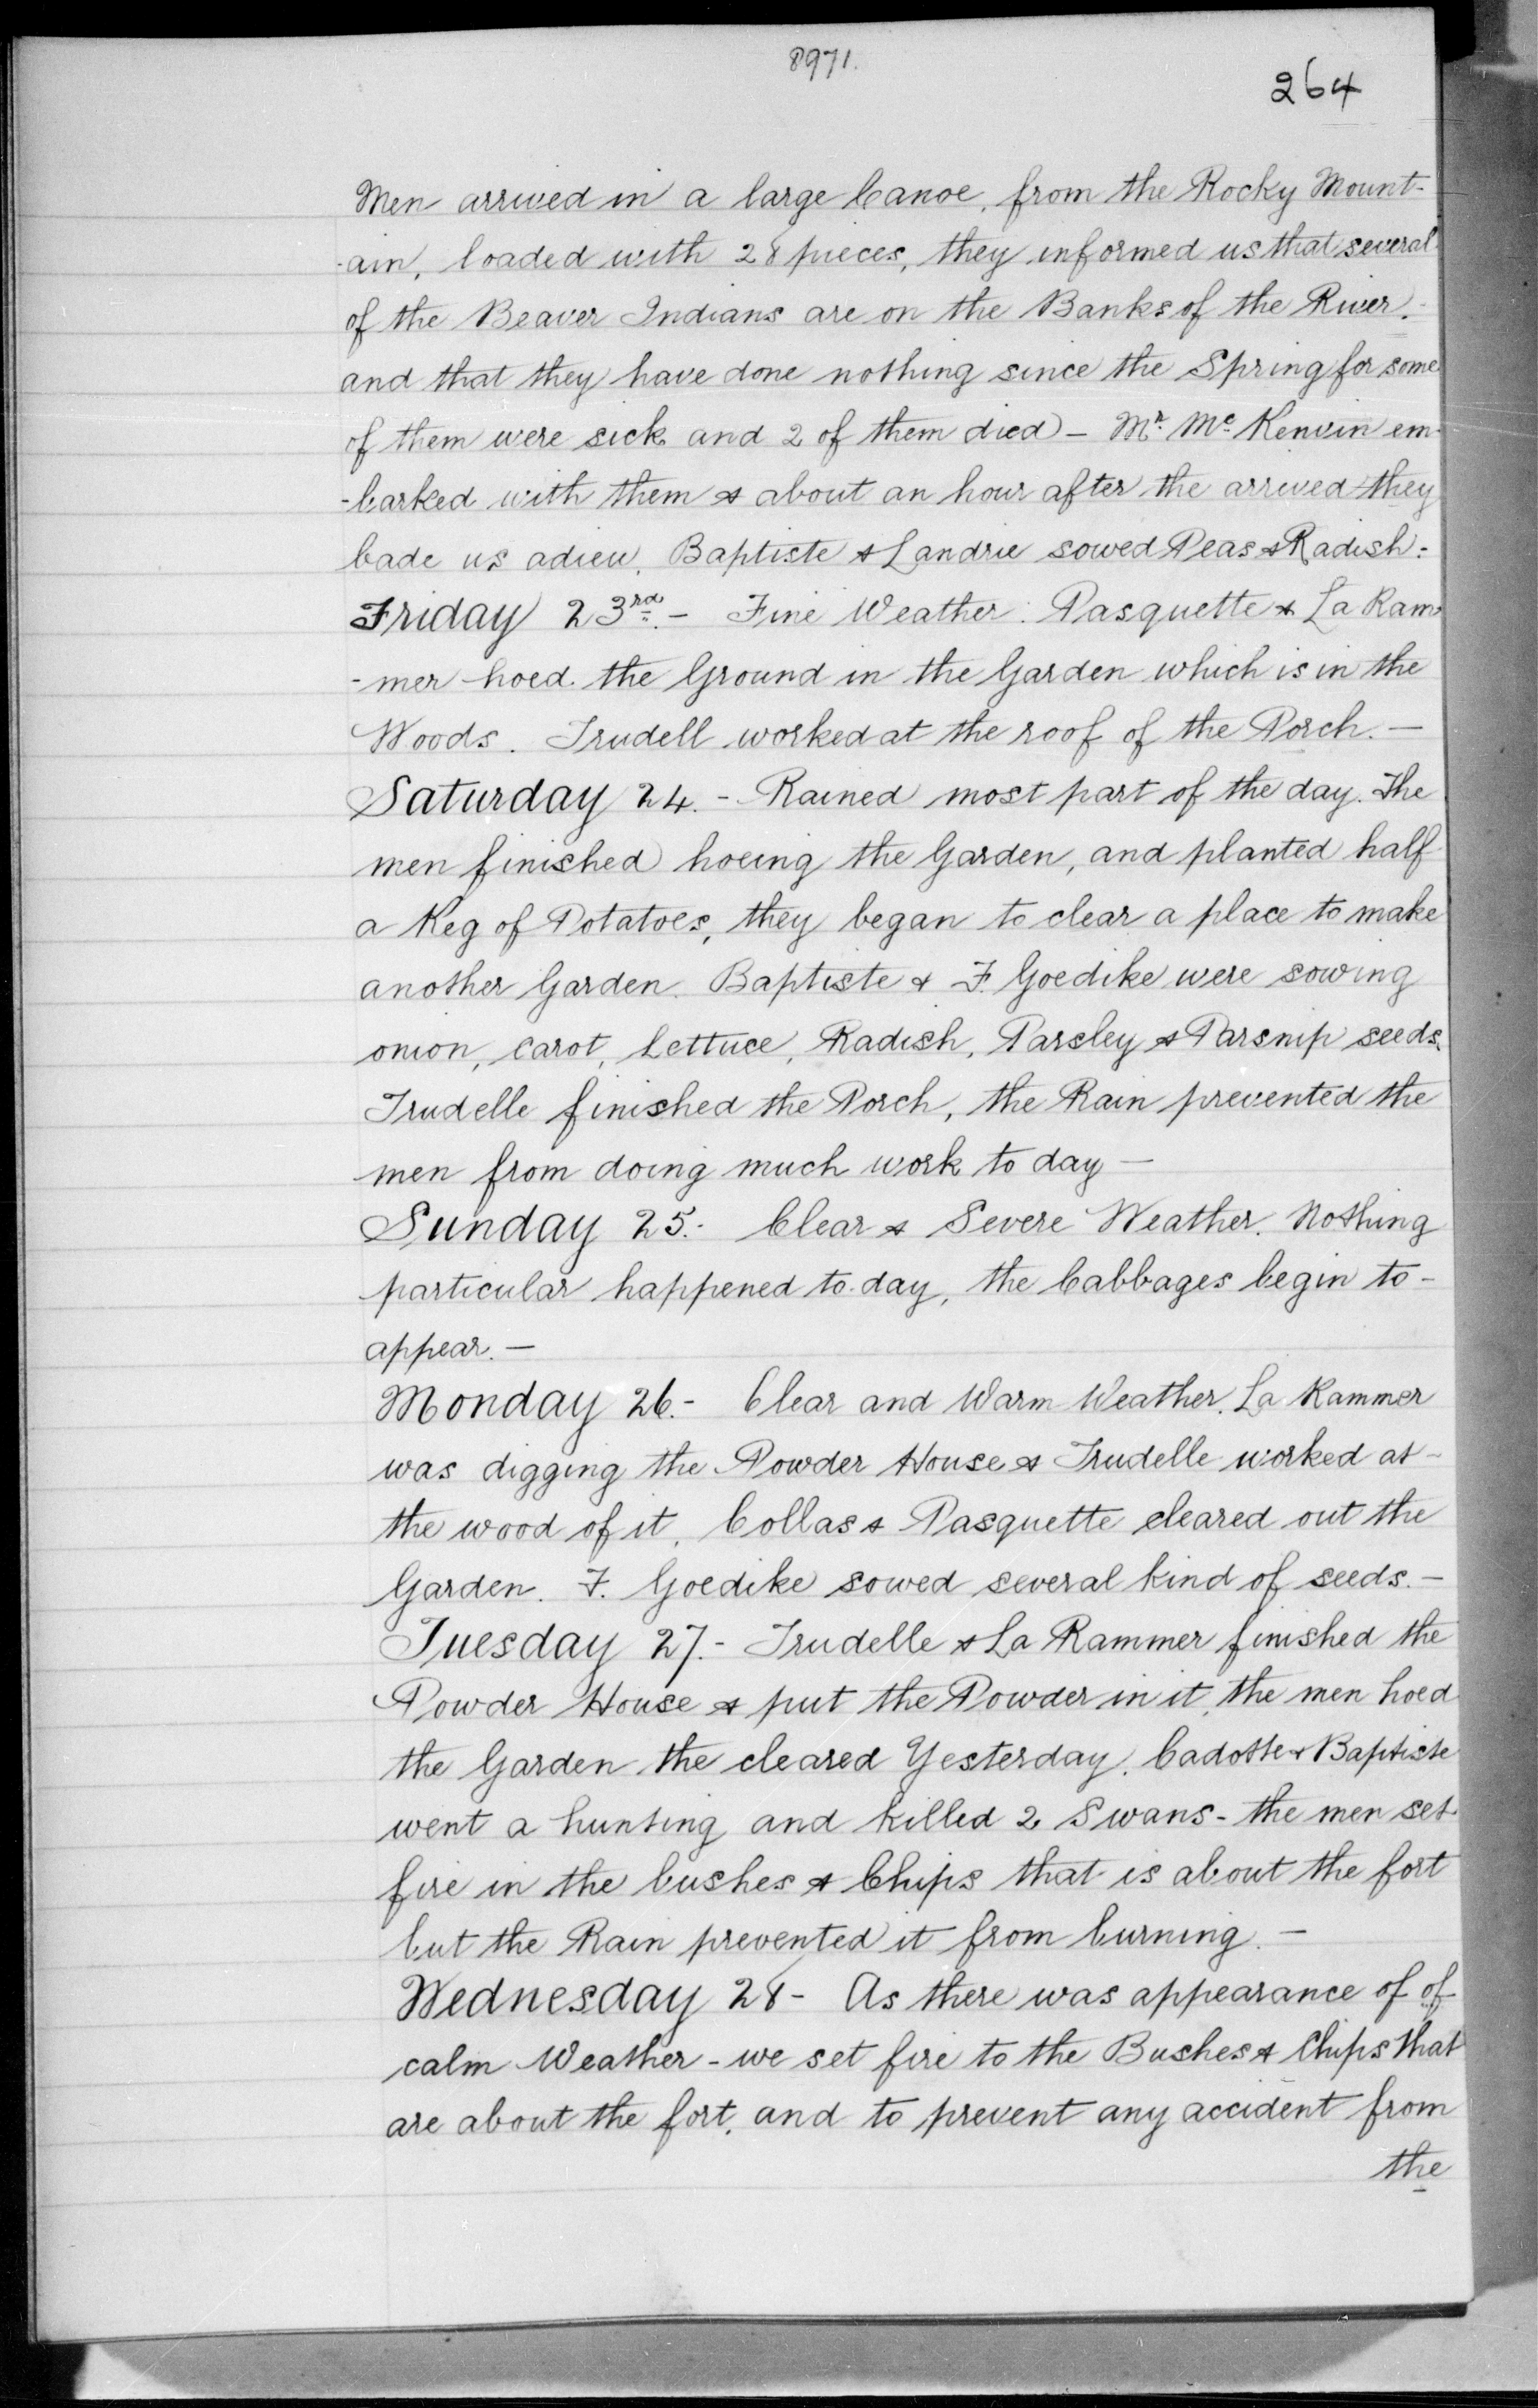 8971.
264
Men arrived in a large Canoe, from the Rocky Mount-
-ain, loaded with 28 pieces, they informed us that several
of the Beaver Indians are on the Banks of the River.-
and that they have done nothing since the Spring for some
of them were sick and 2 of them died - Mr. Mc. Kenvin em-
-barked with them & about an hour after the arrived they
bade us adieu. Baptiste & Landrie sowed Peas & Radish:
Friday 23rd. - Fine Weather. Pasquette & La Ram-
-mer hoed the Ground in the Garden which is in the
Woods. Trudell worked at the roof of the Porch. -
Saturday 24. - Rained most part of the day. The
men finished hoeing the Garden, and planted half
a Keg of Potatoes, they began to clear a place to make
another Garden. Baptiste & F. Goedike were sowing
onion, carot, Lettuce, Radish, Parsley & Parsnip seeds.
Trudelle finished the Porch, the Rain prevented the
men from doing much work to day -
Sunday 25. Clear & Severe Weather. Nothing
particular happened to-day, the Cabbages begin to -
appear. -
Monday 26. - Clear and Warm Weather. La Rammer
was digging the Powder House & Trudelle worked at -
the wood of it, Collas & Pasquette cleared out the
Garden. F. Goedike sowed several kind of seeds. -
Tuesday 27. - Trudelle & La Rammer finished the
Powder House & put the Powder in it, the men hoed
the Garden the cleared Yesterday. Cadotte & Baptiste
went a hunting and killed 2 Swans - the men set
fire in the bushes & Chips that is about the fort
but the Rain prevented it from burning. -
Wednesday 28 - As there was appearance of of
calm Weather - we set fire to the Bushes & Chips that
are about the fort, and to prevent any accident from
the